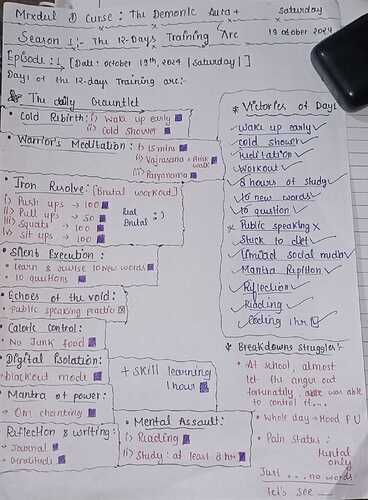 Mixdul D Curse : The Demonic Aura + Saturday
Season 1 :- The 12-Days Training Arc
19 october 2024
Episode : 1 [Date: october 19th, 2024 |saturday|]
Day 1 of the 12-days Training arc :-
The daily Grauntlet
• Cold Rebirth: i) Wake up early
ii) Cold Shower
• Warrior's Meditation : i) 15 mins
ii) Vajrasana + Brisk walk
iii) Paryanama
• Iron Resolve: [Brutal workout]
i) Push ups → 100
ii) Pull ups → 50
iii) Squats → 100
iv) Sit ups → 100
Real Brutal :)
• Silent Execution:
• learn & revise 10 new words
• 10 questions
• Echoes of the void:
• Public speaking practice
• Caloric Control:
• No Junk food
• Digital Isolation:
• blackout mode
+ Skill learning
1 hour
• Mantra of power:
→ Om chanting
Reflection & writing:
→ Journal
→ Gratitude
• Mental Assault:
i) Reading
ii) Study: at least 8 hr
* Victories of Day 1
✓ wake up early ✓
✓ cold shower ✓
✓ meditation ✓
✓ workout ✓
✓ 8 hours of study ✓
✓ 10 new words ✓
✓ 10 question ✓
x Public speaking x
✓ Stuck to diet ✓
✓ limited social media ✓
✓ Mantra Repition ✓
✓ Reflection ✓
✓ Reading ✓
✓ Coding 1 hr
* Breakdowns Struggles :-
• At school, almost
let the anger out
fortunately, was able
to control it...
• Whole day → Hood F U
• Pain status :
Mental
only
Just .... no words
let's see